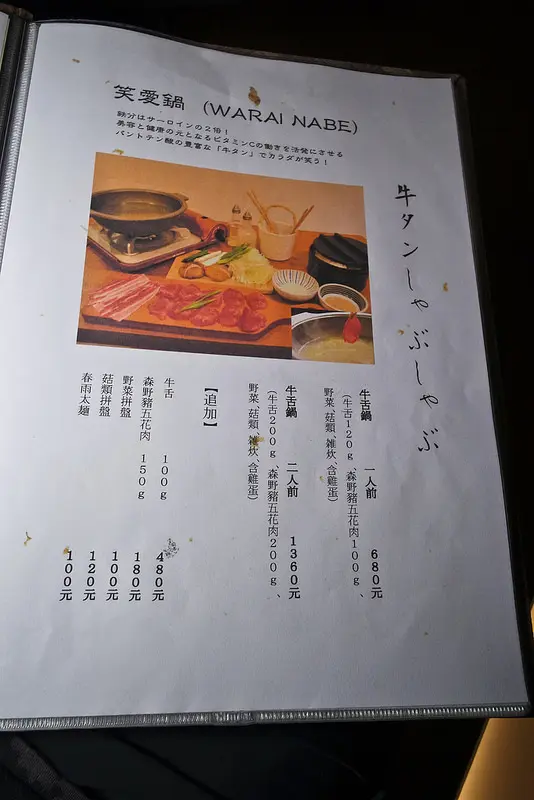 笑愛鍋 (WARAI NABE)
鉄分はサーロインの2倍！
美容と健康の元となるビタミンCの働きを活発にさせる
パントテン酸の豊富な「牛タン」でカラダが笑う！
牛タンしゃぶしゃぶ
牛舌鍋 一人前 680元
(牛舌120g、森野豬五花肉100g、
野菜、菇類、雑炊、含雞蛋)
牛舌鍋 二人前 1360元
(牛舌200g、森野豬五花肉200g、
野菜、菇類、雑炊、含雞蛋)
【追加】
牛舌 100g 480元
森野豬五花肉 150g 180元
野菜拼盤 100元
菇類拼盤 120元
春雨太麺 100元